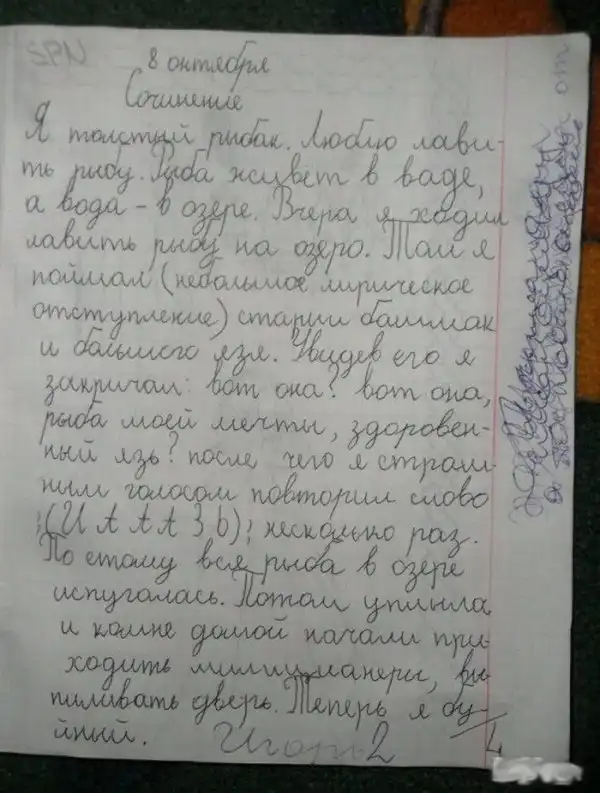 SPN
8 онтября
Сочинение
Я толстый рыбак. Люблю лави-
ть рыбу. Рыба живет в ваде,
а вода - в озере. Вчера я ходил
лавить рыбу на озеро. Там я
поймал (небольшое лирическое
отступление) старии башмак
и большого язя. Увидев его я
закричал: вот она? вот она,
рыба моей мечты, здоровен-
ный язь? после чего я страш-
ным голосом повторил слово
(И А А А З Ь) несколько раз.
По етому вся рыба в озере
испугалась. Потом уплыла
и комне домой начали при-
ходить милицианеры, вы-
пиливать дверь. Теперь я бу-
йный.
Игорь 2
4
от